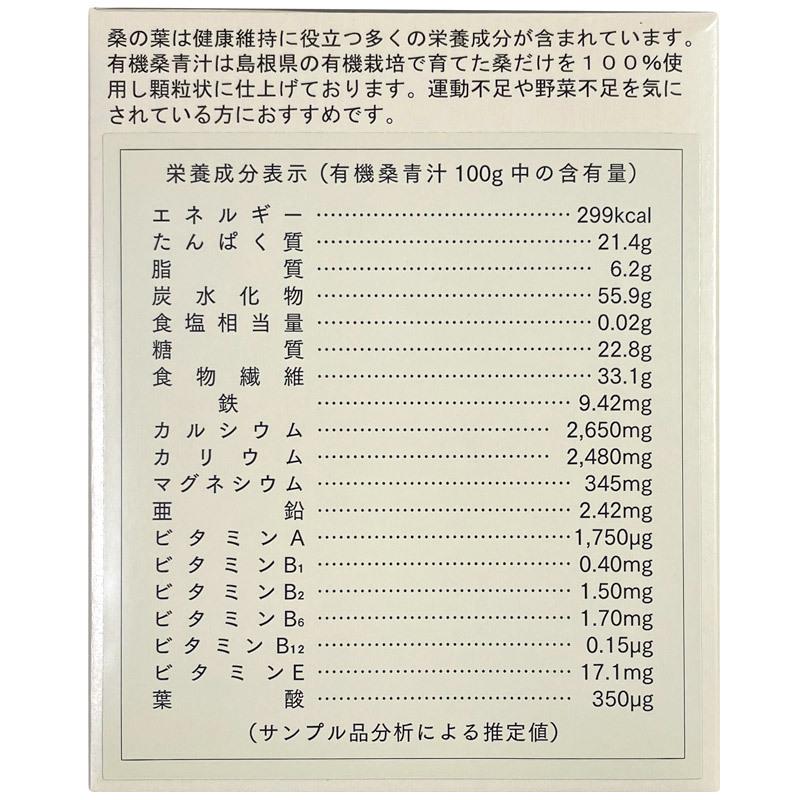 桑の葉は健康維持に役立つ多くの栄養成分が含まれています。
有機桑青汁は島根県の有機栽培で育てた桑だけを１００％使
用し顆粒状に仕上げております。運動不足や野菜不足を気に
されている方におすすめです。
栄養成分表示（有機桑青汁100g中の含有量）
エネルギー 299kcal
たんぱく質 21.4g
脂質 6.2g
炭水化物 55.9g
食塩相当量 0.02g
糖質 22.8g
食物繊維 33.1g
鉄 9.42mg
カルシウム 2,650mg
カリウム 2,480mg
マグネシウム 345mg
亜鉛 2.42mg
ビタミンA 1,750μg
ビタミンB1 0.40mg
ビタミンB2 1.50mg
ビタミンB6 1.70mg
ビタミンB12 0.15μg
ビタミンE 17.1mg
葉酸 350μg
（サンプル品分析による推定値）